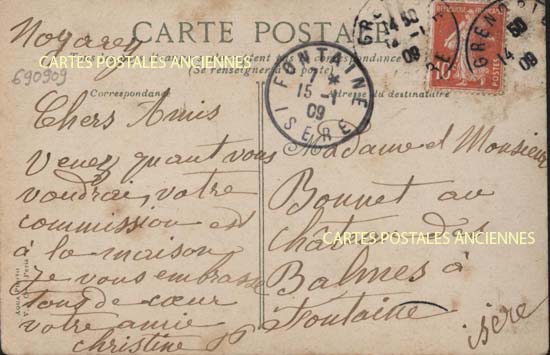 CARTE POSTALE
Noyarey
CARTES POSTALES ANCIENNES
690909
(Se renseigner à la poste)
Correspondance
Adresse du destinataire
FONTAINE
15 -1
09
ISERE
GRENOBLE
14 -1
09
POSTES
10
Chers Amis
Venez quant vous
voudrai, votre
commission est
à la maison
je vous embrasse
tous de cœur
votre amie
christine
Madame et Monsieur
Bonnet au
château des
CARTES POSTALES ANCIENNES
Balmes à
Fontaine
isère